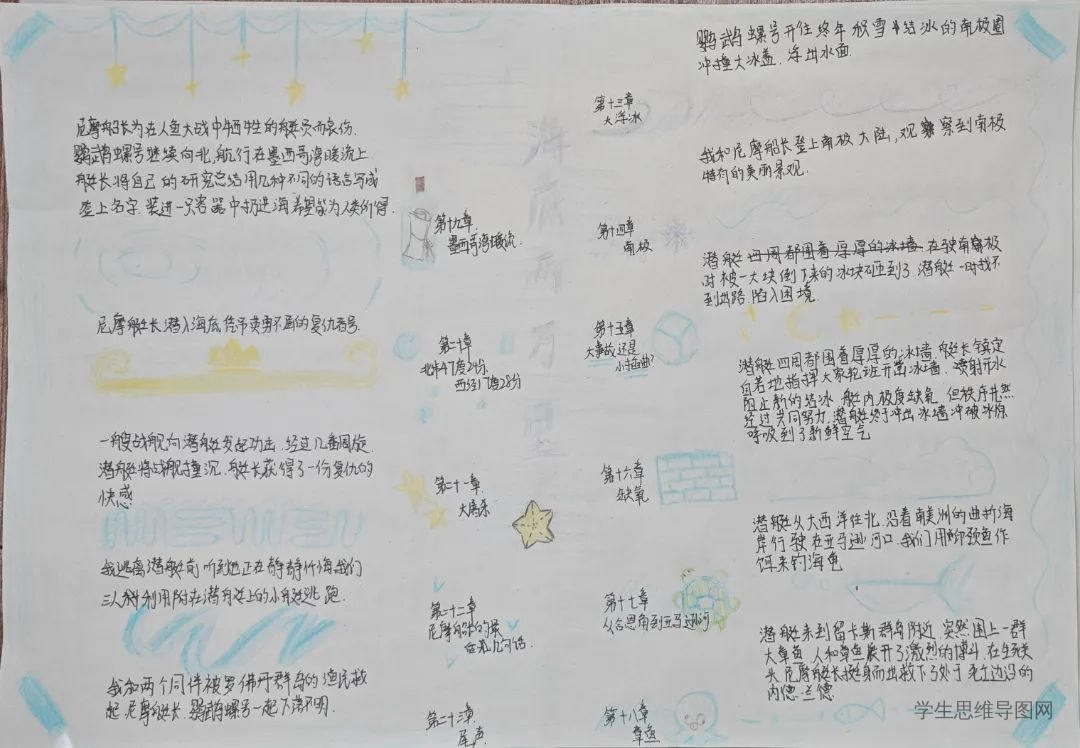 鹦鹉螺号开往终年积雪结冰的南极圈
冲撞大冰盖.浮出水面.
第十三章
大浮冰
我和尼摩船长登上南极大陆,观察到南极
特有的美丽景观.
第十四章
南极
潜艇四周都围着厚厚的冰墙在驶离南极
时被一大块倒下来的冰块砸到了.潜艇一时找不
到出路.陷入困境
第十五章
大事故还是
小插曲?
潜艇四周都围着厚厚的冰墙.艇长镇定
自若地指挥大家轮班开凿冰墙.喷射开水
阻止新的结冰.艇内极度缺氧.但秩序井然
经过共同努力,潜艇终于冲出冰墙冲破冰原
呼吸到了新鲜空气
第十六章
缺氧
潜艇从大西洋往北.沿着南美洲的曲折海
岸行驶在亚马逊河口.我们用䲟鱼作
饵来钓海龟
第十七章
从合恩角到亚马逊河
潜艇来到留卡斯群岛附近.突然围上一群
大章鱼.人和章鱼展开了激烈的博斗.在生死关
头.尼摩船长挺身而出救下了处于死亡边沿的
内德·兰德
第十八章
章鱼
海底两万里
尼摩船长为在人鱼大战中牺牲的艇员而哀伤.
鹦鹉螺号继续向北,航行在墨西哥湾暖流上
艇长将自己的研究总结用几种不同的语言写成
签上名字.装进一只容器中扔进海希望能为人类所得.
第十九章
墨西哥湾暖流.
尼摩艇长潜入海底凭吊英勇不屈的复仇者号.
第二十章
北纬47度24分、
西经17度28分
一艘战舰向潜艇发起功击.经过几番周旋.
潜艇将战舰撞沉.艇长获得了一份复仇的
快感
第二十一章
大屠杀
我逃离潜艇前听到他正在静静忏悔.我们
三人利用附在潜艇上的小艇逃跑.
第二十二章
尼摩船长的最
后几句话
我和两个同伴被罗佛丹群岛的渔民救
起.尼摩艇长.鹦鹉螺号一起下落不明.
第二十三章
尾声
学生思维导图网